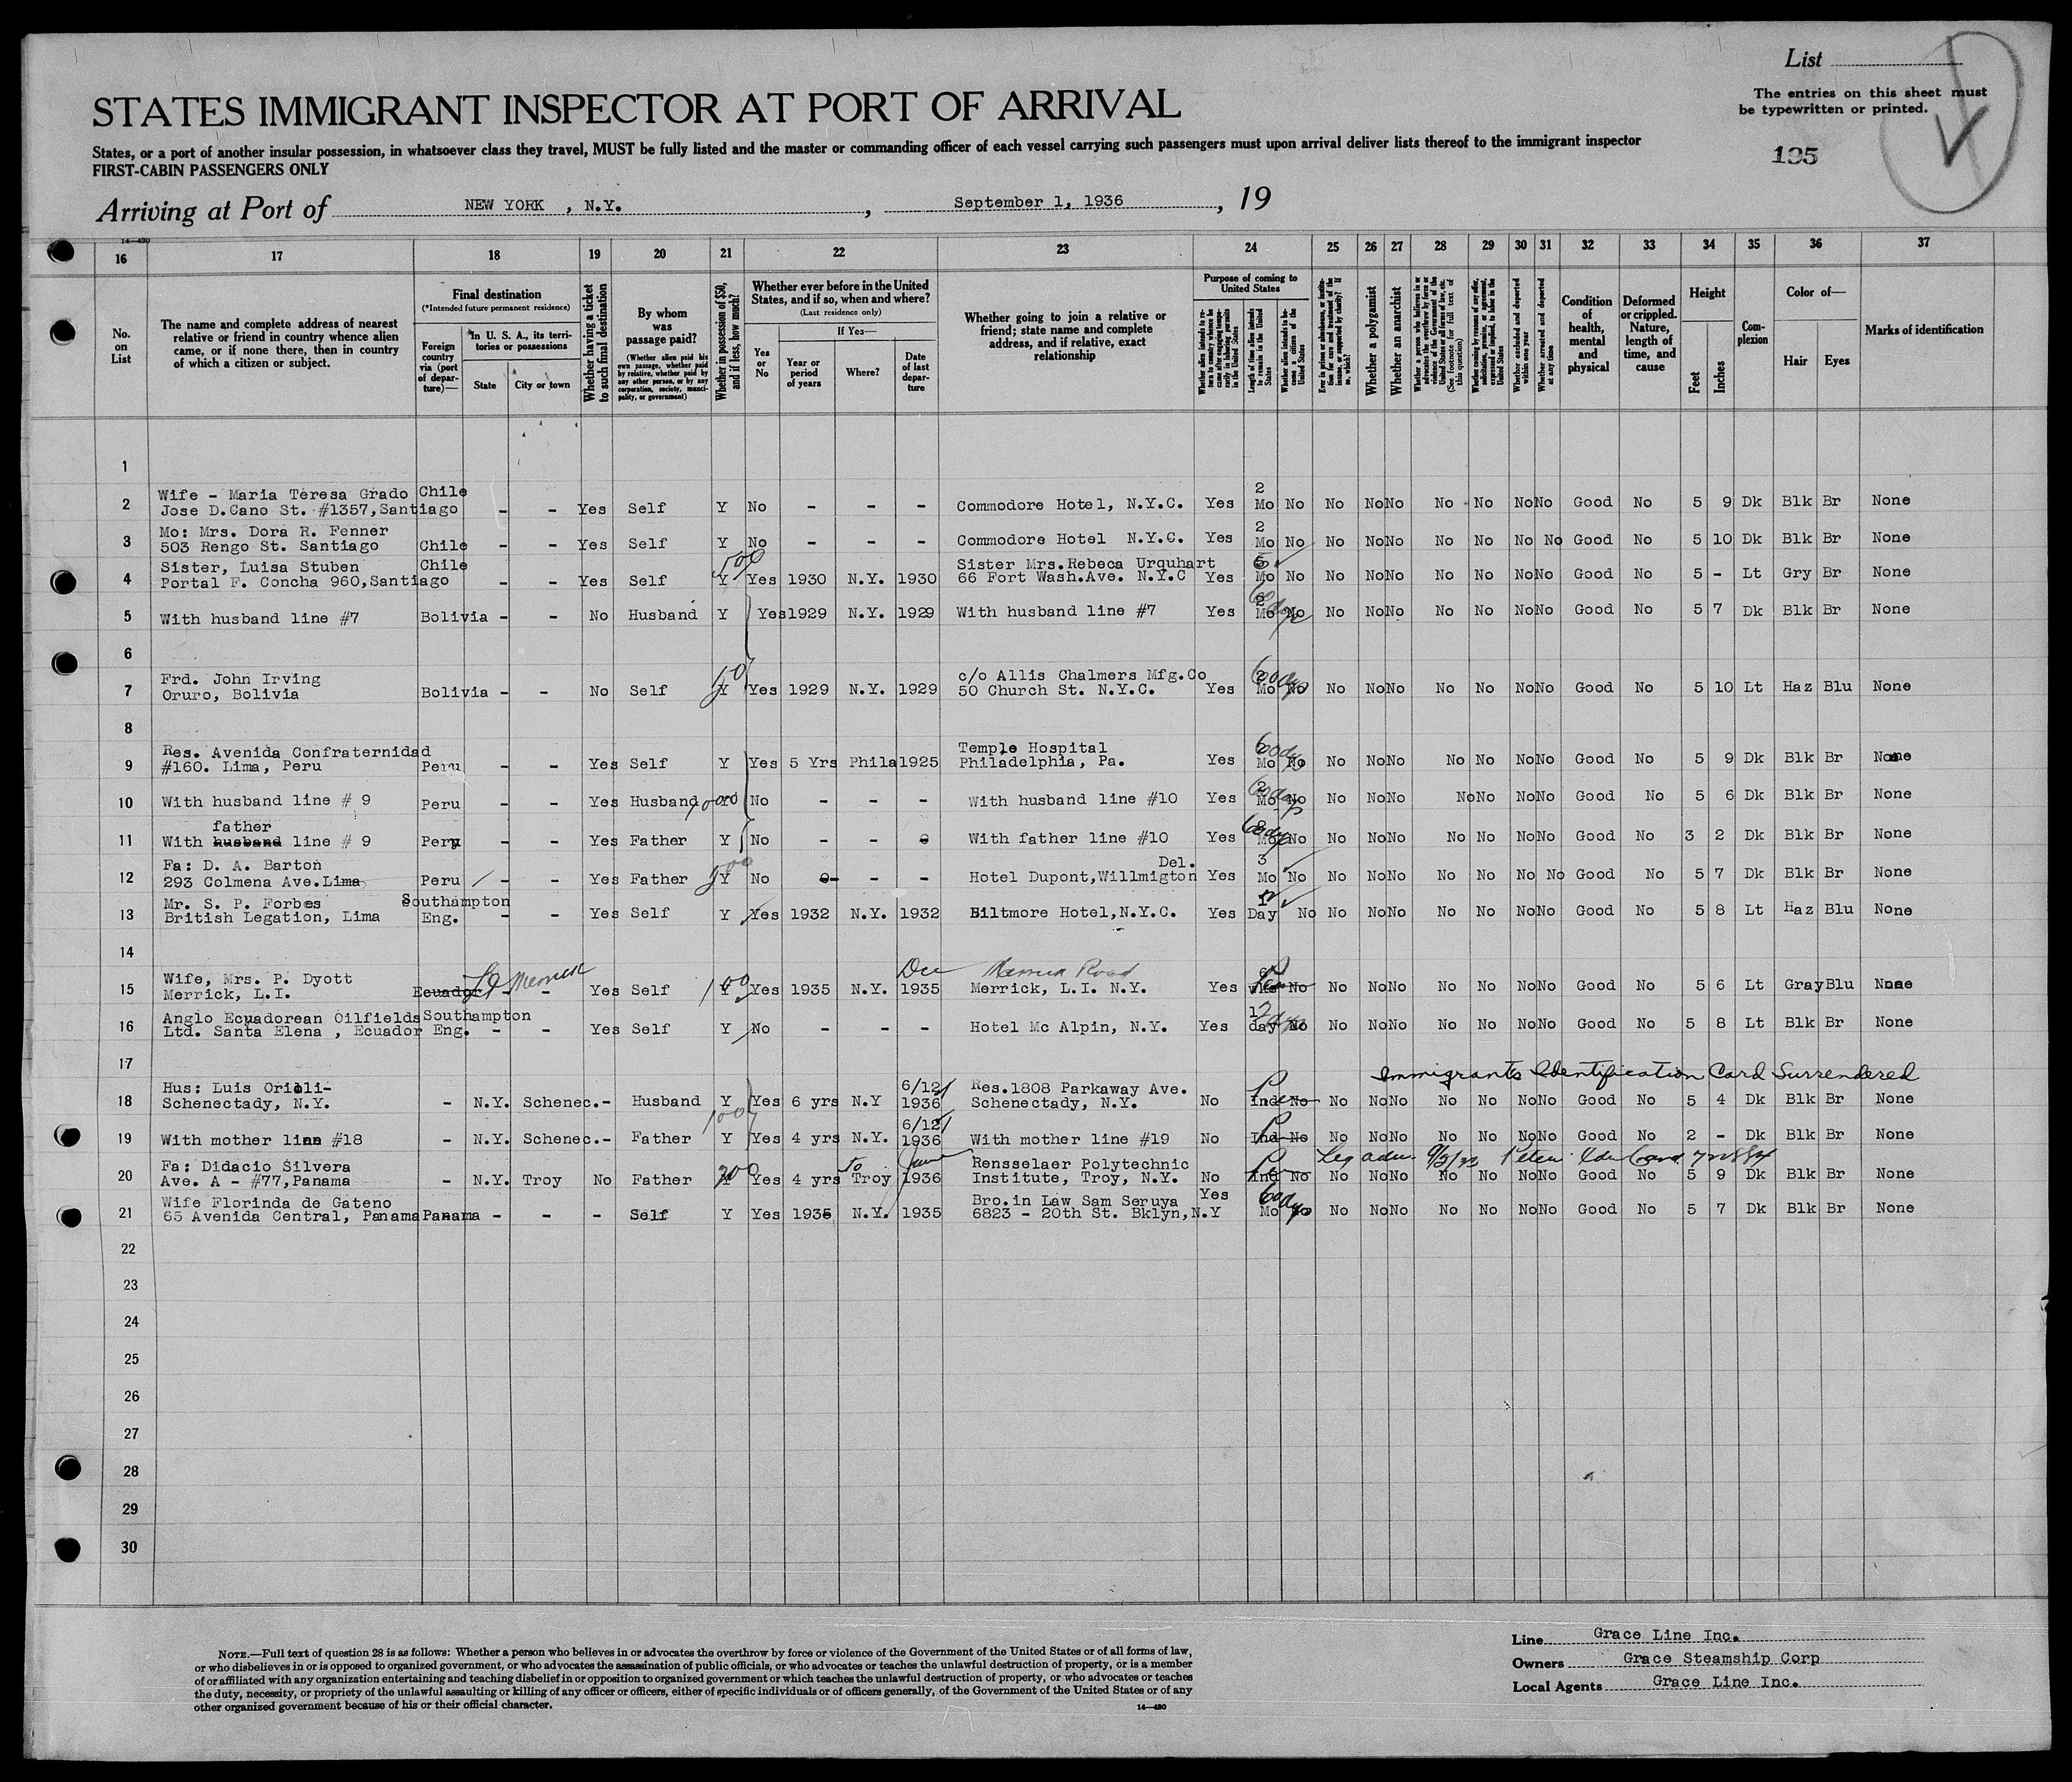 List
The entries on this sheet must
be typewritten or printed.
STATES IMMIGRANT INSPECTOR AT PORT OF ARRIVAL
States, or a port of another insular possession, in whatsoever class they travel, MUST be fully listed and the master or commanding officer of each vessel carrying such passengers must upon arrival deliver lists thereof to the immigrant inspector
FIRST-CABIN PASSENGERS ONLY
195
Arriving at Port of NEW YORK , N.Y. , September 1, 1936 , 19
14—430
16 17 18 19 20 21 22 23 24 25 26 27 28 29 30 31 32 33 34 35 36 37
No. on List
The name and complete address of nearest relative or friend in country whence alien came, or if none there, then in country of which a citizen or subject.
Final destination
(*Intended future permanent residence)
Foreign country via (port of departure)—
In U. S. A., its territories or possessions
State
City or town
Whether having a ticket to such final destination
By whom was passage paid?
(Whether alien paid his own passage, whether paid by relative, whether paid by any other person, or by any corporation, society, municipality, or government)
Whether in possession of $50, and if less, how much?
Whether ever before in the United States, and if so, when and where?
(Last residence only)
Yes or No
If Yes—
Year or period of years
Where?
Date of last departure
Whether going to join a relative or friend; state name and complete address, and if relative, exact relationship
Purpose of coming to United States
Length of time alien intends to remain in the United States
Whether alien intends to become a citizen of the United States
Whether a polygamist
Whether an anarchist
(See footnote for full text of this question)
Whether excluded and deported within one year
Whether arrested and deported at any time
Condition of health, mental and physical
Deformed or crippled. Nature, length of time, and cause
Height
Feet
Inches
Complexion
Color of—
Hair
Eyes
Marks of identification
1
2 Wife - Maria Teresa Grado Jose D.Cano St. #1357,Santiago Chile - - Yes Self Y No - - - Commodore Hotel, N.Y.C. Yes 2 Mo No No No No No No No No Good No 5 9 Dk Blk Br None
3 Mo: Mrs. Dora R. Fenner 503 Rengo St. Santiago Chile - - Yes Self Y No - - - Commodore Hotel N.Y.C. Yes 2 Mo No No No No No No No No Good No 5 10 Dk Blk Br None
4 Sister, Luisa Stuben Portal F. Concha 960,Santiago Chile - - Yes Self Y 500 Yes 1930 N.Y. 1930 Sister Mrs.Rebeca Urquhart 66 Fort Wash.Ave. N.Y.C Yes Mo No No No No No No No No Good No 5 - Lt Gry Br None
5 With husband line #7 Bolivia - - No Husband Y Yes 1929 N.Y. 1929 With husband line #7 Yes 2 Mo 60 days No No No No No No No No Good No 5 7 Dk Blk Br None
6
7 Frd. John Irving Oruro, Bolivia Bolivia - - No Self Y Yes 1929 N.Y. 1929 c/o Allis Chalmers Mfg.Co 50 Church St. N.Y.C. Yes 2 Mo 60 days No No No No No No No No Good No 5 10 Lt Haz Blu None
8
9 Res. Avenida Confraternidad #160. Lima, Peru Peru - - Yes Self Y Yes 5 Yrs Phila 1925 Temple Hospital Philadelphia, Pa. Yes Mo 60 dys No No No No No No No No Good No 5 9 Dk Blk Br None
10 With husband line # 9 Peru - - Yes Husband Y No - - - With husband line #10 Yes Mo 60 dys No No No No No No No No Good No 5 6 Dk Blk Br None
11 With husband father line # 9 Peru - - Yes Father Y No - - With father line #10 Yes Mo 60 dys No No No No No No No No Good No 3 2 Dk Blk Br None
12 Fa: D. A. Barton 293 Colmena Ave.Lima Peru - - Yes Father Y No - - - Hotel Dupont,Willmigton Del. Yes 3 Mo No No No No No No No No Good No 5 7 Dk Blk Br None
13 Mr. S. P. Forbes British Legation, Lima Southampton Eng. - - Yes Self Y Yes 1932 N.Y. 1932 Biltmore Hotel,N.Y.C. Yes Day No No No No No No No No Good No 5 8 Lt Haz Blu None
14
15 Wife, Mrs. P. Dyott Merrick, L.I. Ecuador Merrick - Yes Self Y 100 Yes 1935 N.Y. Dec 1935 Merrick Road Merrick, L.I. N.Y. Yes 6 wks No No No No No No No No Good No 5 6 Lt Gray Blu None
16 Anglo Ecuadorean Oilfields Ltd. Santa Elena , Ecuador Southampton Eng. - - Yes Self Y No - - - Hotel Mc Alpin, N.Y. Yes 1 day No No No No No No No No Good No 5 8 Lt Blk Br None
17 Immigrants Identification Card Surrendered
18 Hus: Luis Orioli- Schenectady, N.Y. - N.Y. Schenec.- Husband Y Yes 6 yrs N.Y 6/12/1936 Res.1808 Parkaway Ave. Schenectady, N.Y. No Ind No No No No No No No No Good No 5 4 Dk Blk Br None
19 With mother line #18 - N.Y. Schenec.- Father Y 100 Yes 4 yrs N.Y. 6/12/1936 With mother line #19 No Ind No No No No No No No No Good No 2 - Dk Blk Br None
20 Fa: Didacio Silvera Ave. A - #77,Panama - N.Y. Troy No Father 200 Yes 4 yrs to Troy June 1936 Rensselaer Polytechnic Institute, Troy, N.Y. No Ind No No No No No No No No Good No 5 9 Dk Blk Br None
21 Wife Florinda de Gateno 65 Avenida Central, Panama Panama - - - Self Y Yes 1935 N.Y. 1935 Bro.in Law Sam Seruya 6823 - 20th St. Bklyn,N.Y Yes Mo 60 dys No No No No No No No Good No 5 7 Dk Blk Br None
22
23
24
25
26
27
28
29
30
NOTE.—Full text of question 28 is as follows: Whether a person who believes in or advocates the overthrow by force or violence of the Government of the United States or of all forms of law,
or who disbelieves in or is opposed to organized government, or who advocates the assassination of public officials, or who advocates or teaches the unlawful destruction of property, or is a member
of or affiliated with any organization entertaining and teaching disbelief in or opposition to organized government or which teaches the unlawful destruction of property, or who advocates or teaches
the duty, necessity, or propriety of the unlawful assaulting or killing of any officer or officers, either of specific individuals or of officers generally, of the Government of the United States or of any
other organized government because of his or their official character.
14—430
Line Grace Line Inc.
Owners Grace Steamship Corp
Local Agents Grace Line Inc.